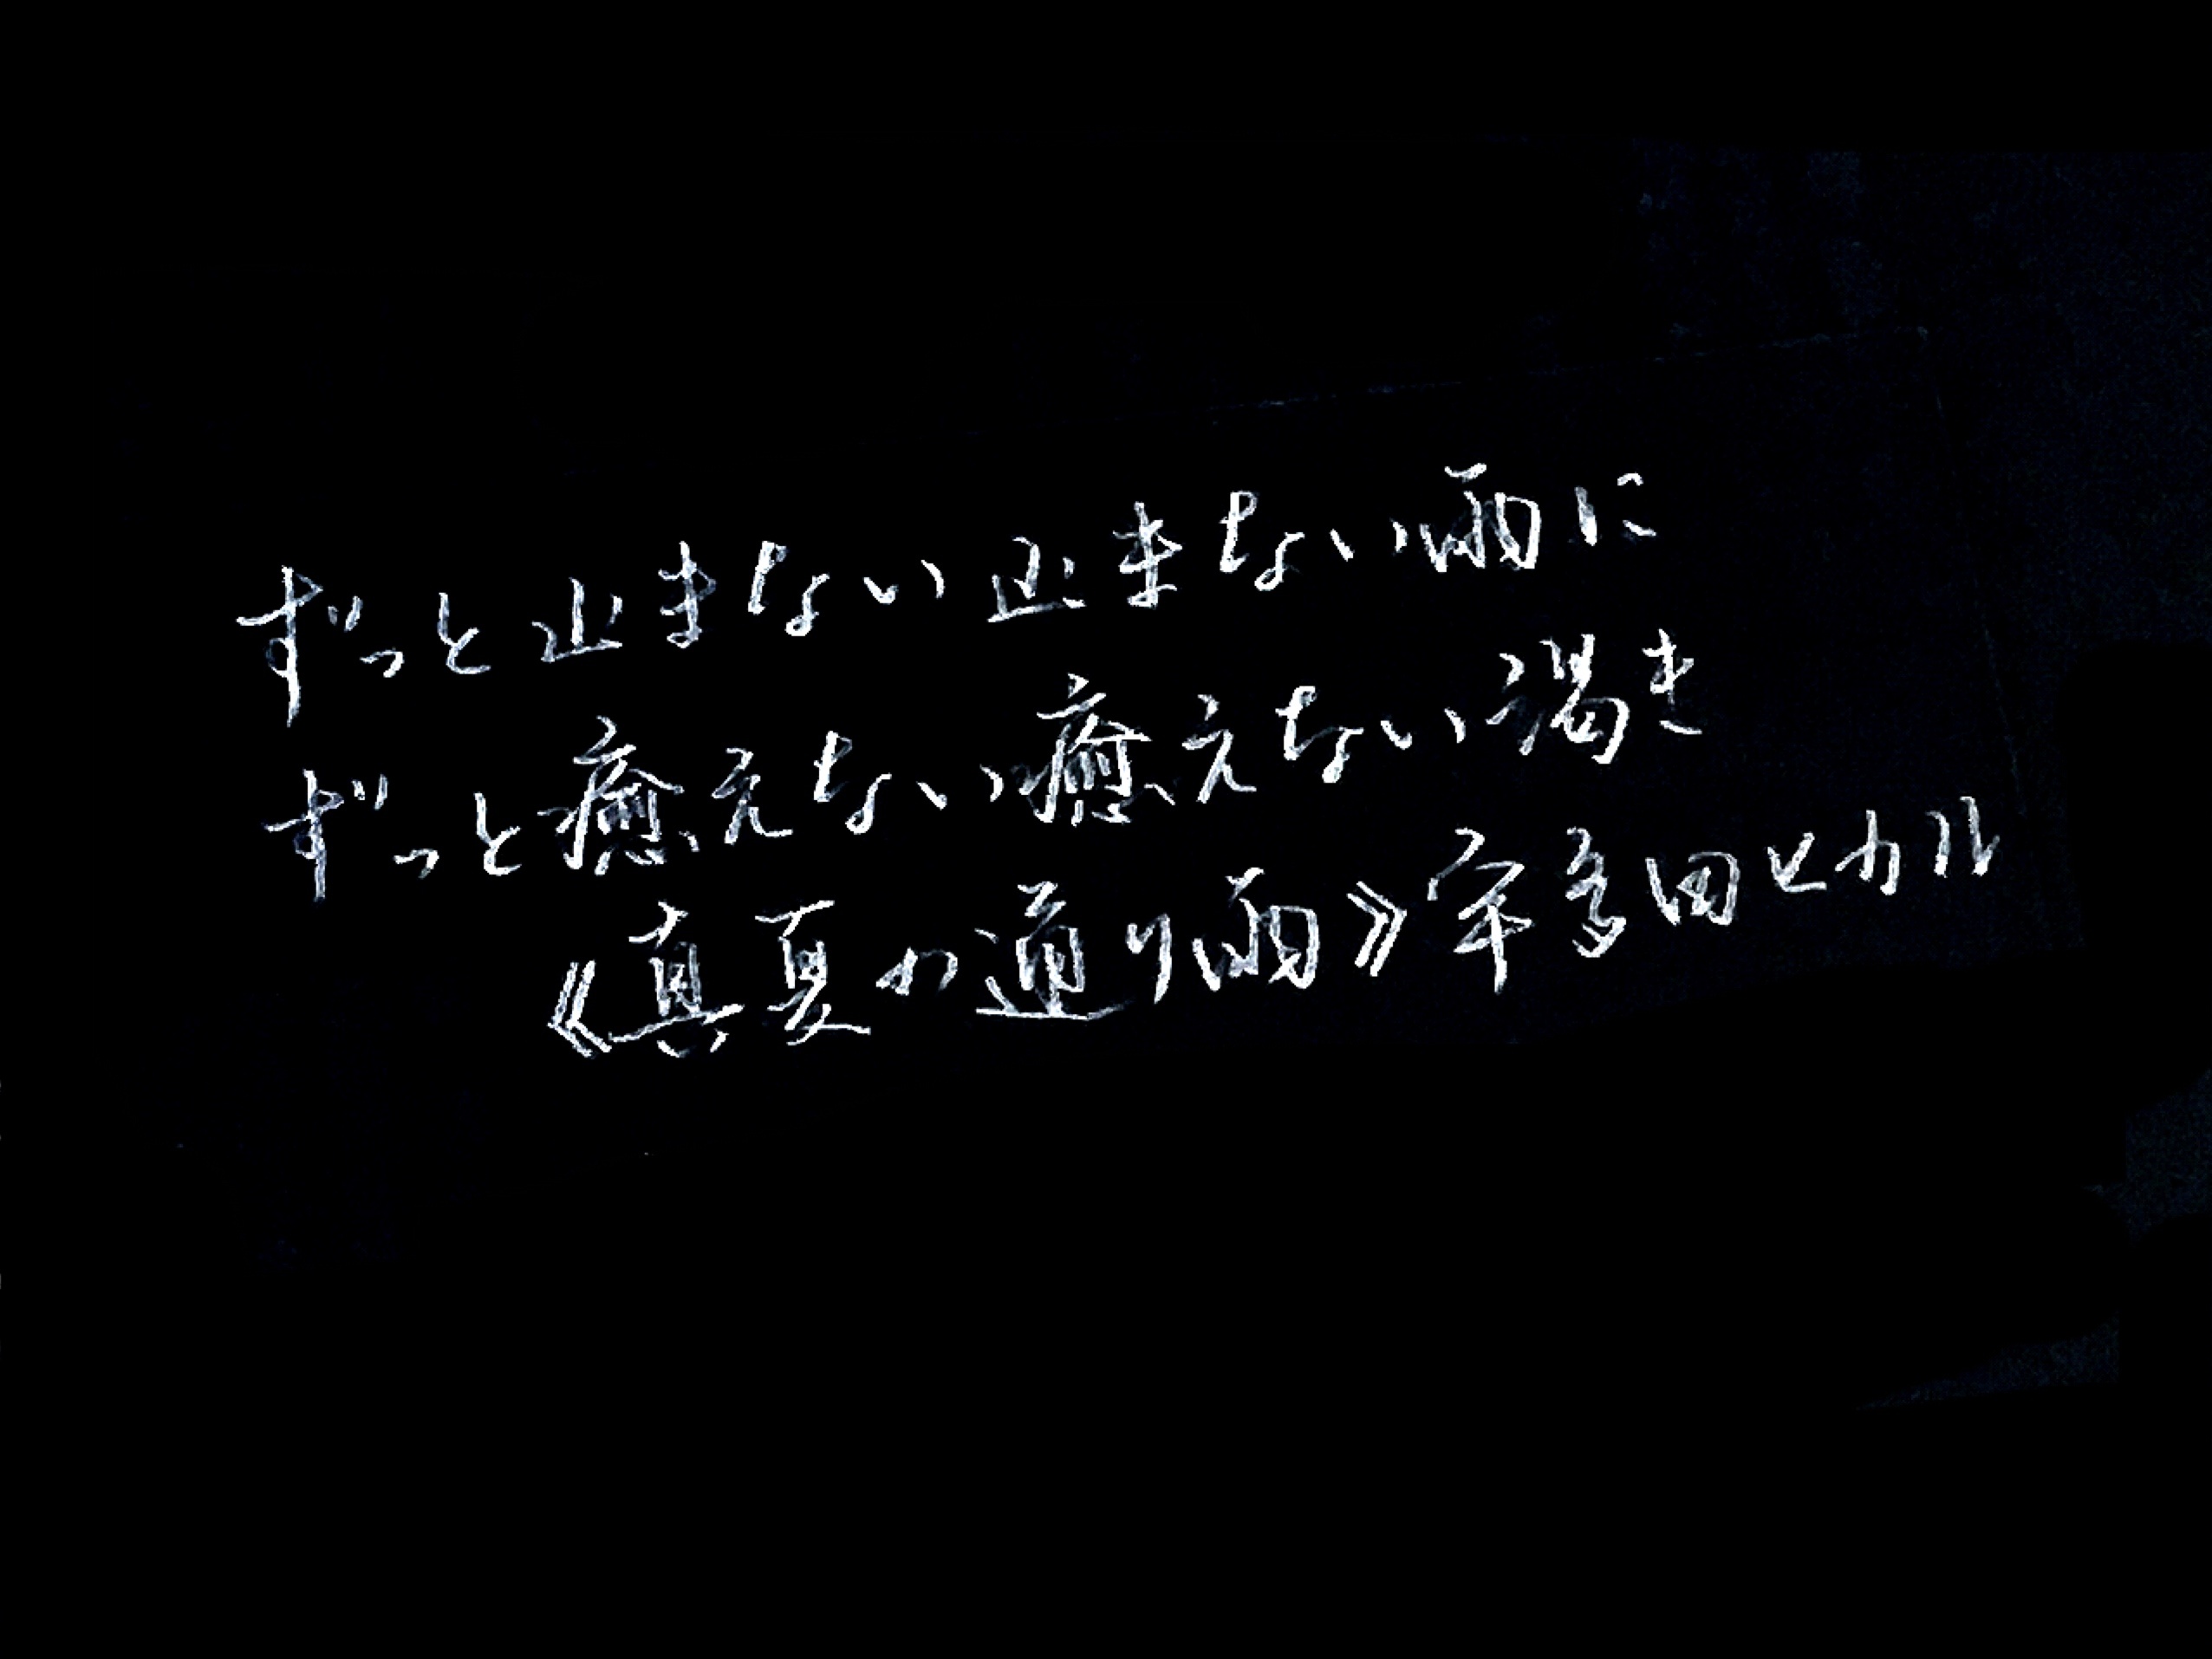 ずっと止まない止まない雨に
ずっと癒えない癒えない渇き
《真夏の通り雨》宇多田ヒカル